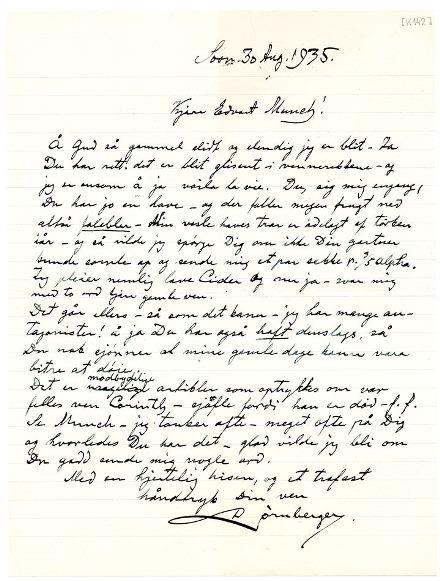 [K142]
Soon 30 Aug. 1935.
Kjære Edvart Munch!
Å Gud så gammel slidt og elendig jeg er blit – Ja
Du har rett: det er blit glisent i vennerekkene – og
jeg er ensom å ja voila la vie. Du, sig mig engang,
Du har jo en have – og der feller megen frugt ned
altså falebler – Min vesle haves trær er ødelagt af tørken
iår – og så vilde jeg spørge Dig om ikke Din gartner
kunde samle op og sende mig et par sekke pr.
Jeg pleier nemlig lave Cider og nu ja – svar mig
med to ord kjære gamle ven.
Det går ellers – så som det kan – jeg har mange an-
tagonister! å ja Du har også haft denslags, så
Du nok skjønner at mine gamle dage kan være
bitre at døie.
modbydelige
Det er artikler som optrykkes om vår
felles ven Corinth – fordi han er død – f.f.
Se Munch – jeg tænker ofte – meget ofte på Dig
og hvorledes Du har det – glad vilde jeg bli om
Du gadd sende mig nogle ord.
Med en hjertelig hilsen, og et trofast
håndtryk Din ven
Dørnberger.